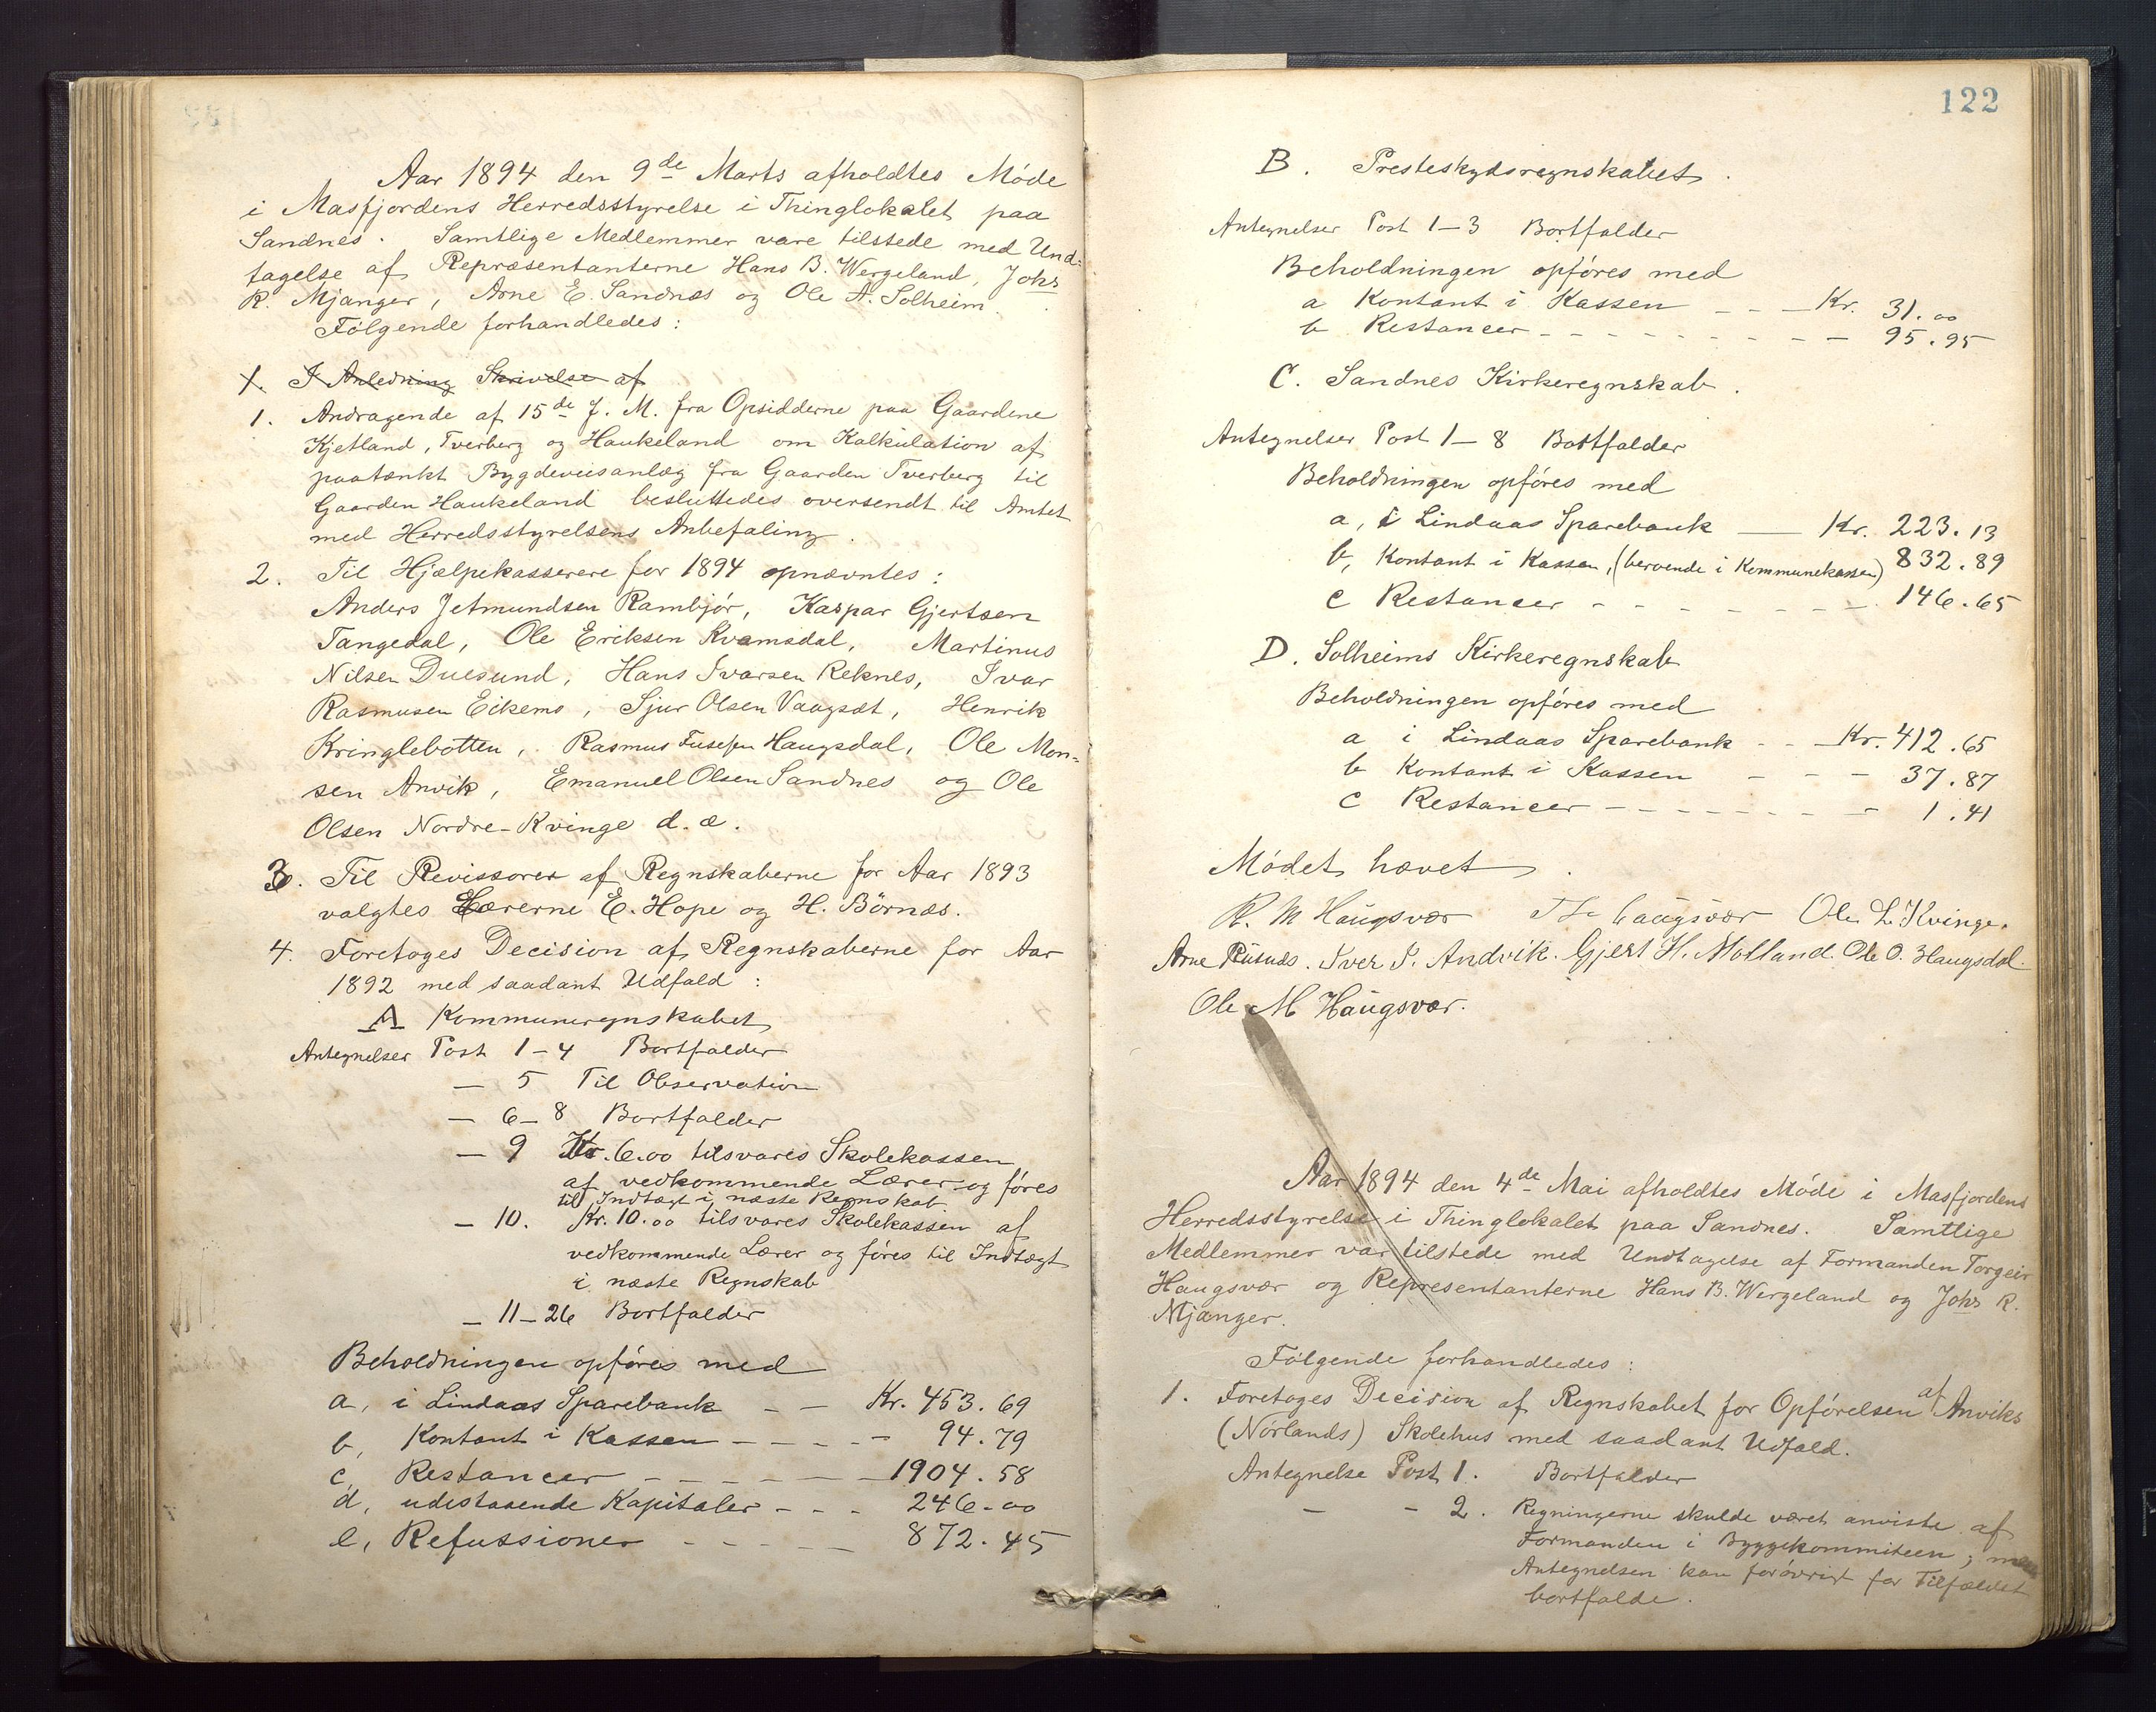 Aar 1894 den 9de Marts afholdtes Møde
i Masfjordens Herredsstyrelse i Thinglokalet paa
Sandnes. Samtlige Medlemmer vare tilstede med Und-
tagelse af Repræsentanterne Hans B. Wergeland, Johs
R. Mjanger, Arne E. Sandnæs og Ole A. Solheim.
Følgende forhandledes:
1. I Anledning Skrivelse af
1. Andragende af 15de f. M. fra Opsidderne paa Gaardene
Kjetland, Tverberg og Haukeland om Kalkulation af
paatænkt Bygdeveisanlæg fra Gaarden Tverberg til
Gaarden Haukeland besluttedes oversendt til Amtet
med Herredsstyrelsens Anbefaling.
2. Til Hjælpekasserere for 1894 opnævntes:
Anders Jetmundsen Rambjør, Kaspar Gjertsen
Tangedal, Ole Eriksen Kvamsdal, Martinus
Nilsen Duesund, Hans Ivarsen Reknes, Ivar
Rasmusen Eikemo, Sjur Olsen Vaagsæt, Henrik
Kringlebotten, Rasmus Haugsdal, Ole Mon-
sen Anvik, Emanuel Olsen Sandnes og Ole
Olsen Nordre-Kvinge d. æ.
3. Til Revissorer af Regnskaberne for Aar 1893
valgtes Lærerne E. Hope og H. Börnæs.
4. Foretoges Decision af Regnskaberne for Aar
1892 med saadant Udfald:
A Kommuneregnskabet
Antegnelser Post 1-4 Bortfalder
— 5 Til Observation
— 6-8 Bortfalder
— 9 Kr. 6.00 tilsvares Skolekassen
af vedkommende Lærer og føres
til Indtægt i næste Regnskab
— 10. Kr. 10.00 tilsvares Skolekassen af
vedkommende Lærer og føres til Indtægt
i næste Regnskab
— 11-26 Bortfalder
Beholdningen opføres med
a, i Lindaas Sparebank — — Kr. 453.69
b, Kontant i Kassen - - - - - 94.79
c, Restancer - - - - - - 1904.58
d, udestaaende Kapitaler - - - 246-00
e, Refussioner - - - - - 872.45
122
B. Presteskydsregnskabet.
Antegnelser Post 1-3 Bortfalder
Beholdningen opføres med
a Kontant i Kassen - - - Kr. 31.00
b Restancer - - - - - - - - 95.95
C. Sandnes Kirkeregnskab.
Antegnelser Post 1-8 Bortfalder
Beholdningen opføres med
a, i Lindaas Sparebank — Kr. 223.13
b, Kontant i Kassen, (beroende i Kommunekassen) 832.89
c Restancer - - - - - - - 146.65
D. Solheims Kirkeregnskab
Beholdningen opføres med
a i Lindaas Sparebank - - Kr. 412.65
b Kontant i Kassen - - - 37.87
c Restancer - - - - - - - 1.41
Mødet hævet.
R. M Haugsvær Haugsvær Ole L. Kvinge.
Arne Risnæs. Iver I. Andvik. Gjert H. Molland. Ole O. Haugsdal.
Ole M Haugsvær.
Aar 1894 den 4de Mai afholdtes Møde i Masfjordens
Herredsstyrelse i Thinglokalet paa Sandnes. Samtlige
Medlemmer var tilstede med Undtagelse af Formanden Torgeir
Haugsvær og Repræsentanterne Hans B. Wergeland og Johs R.
Mjanger.
Følgende forhandledes:
1. Foretoges Decision af Regnskabet for Opførelsen af Anviks
(Nørlands) Skolehus med saadant Udfald.
Antegnelse Post 1. Bortfalder
— - 2. Regningerne skulde været anviste af
Formanden i Byggekommiteen; men
Antegnelsen kan forøvrigt for Tilfældet
bortfalde.